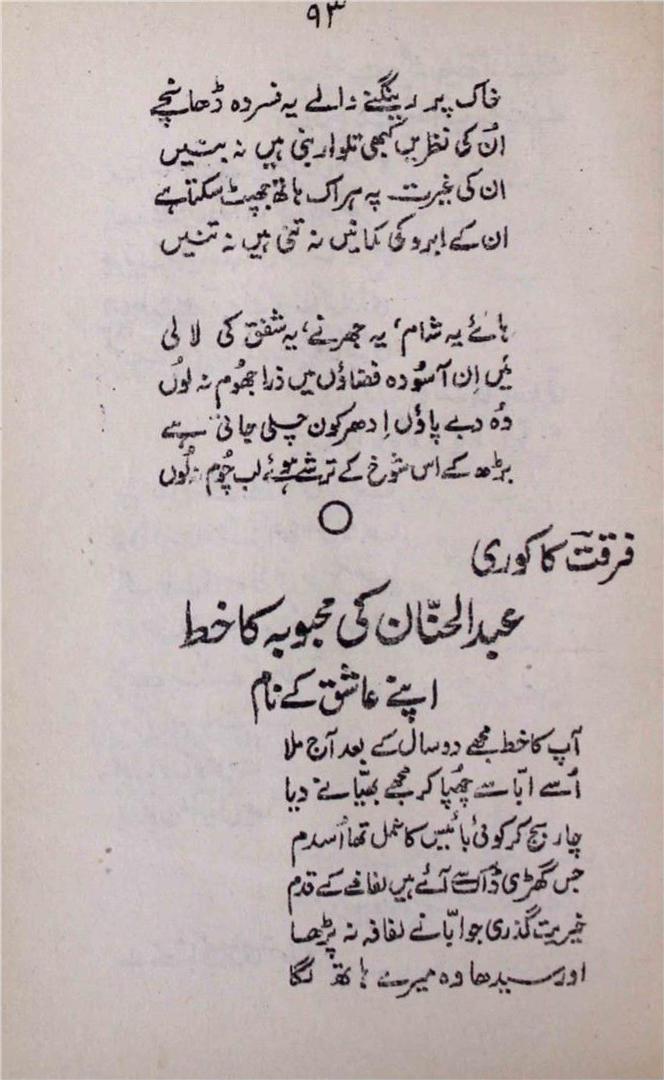 ۹۳
خاک پر رینگنے والے یہ فسردہ ڈھانچے
اُن کی نظریں کبھی تلوار بنی ہیں نہ بنیں
ان کی غیرت پہ ہر اک ہاتھ جھپٹ سکتا ہے
ان کے ابرو کی کمانیں نہ تنی ہیں نہ تنیں
ہائے یہ شام، یہ جھرنے، یہ شفق کی لالی
مَیں اِن آسُودہ فضاؤں میں ذرا جھُوم نہ لوُں
وُہ دبے پاؤں اِدھر کون چلی جاتی ہے
بڑھ کے اس شوخ کے ترشے ہوئے لب چُوم نہ لُوں
فرقتؔ کاکوری
عبدالحنّان کی محبوبہ کا خط
اپنے عاشق کے نام
آپ کا خط مجھے دو سال کے بعد آج ملا
اُسے ابّا سے چھُپا کر مجھے بھیّا نے دیا
چار بج کر کوئی بائیس کا عمل تھا اُسدم
جس گھڑی ڈاک سے آئے ہیں لفافے کے قدم
خیریت گذری جو ابّا نے لفافہ نہ پڑھا
اور سیدھا وہ میرے ہاتھ لگا